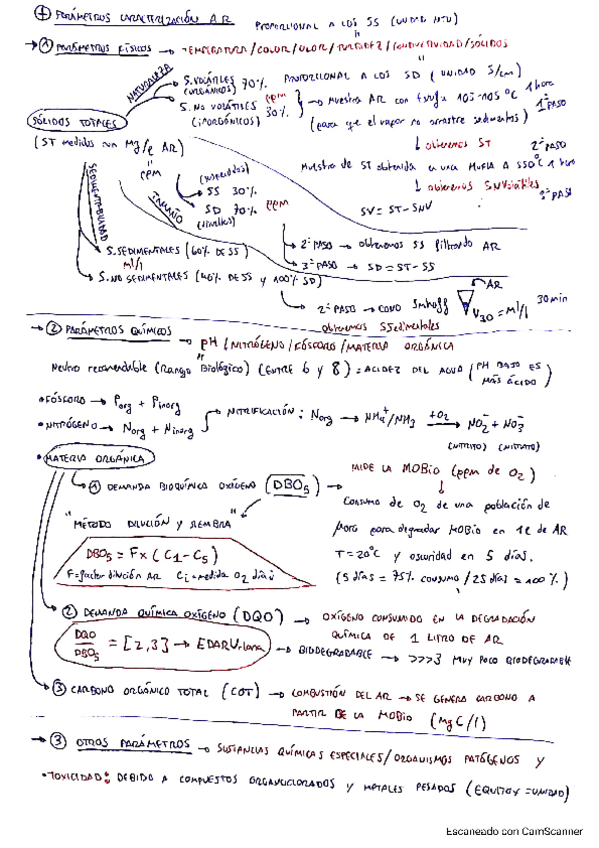 + PARÁMETROS CARACTERIZACIÓN AR PROPORCIONAL A LOS SS (UNIDAD NTU)
→ 1 PARÁMETROS FÍSICOS → TEMPERATURA / COLOR / OLOR / TURBIDEZ / CONDUCTIVIDAD / SÓLIDOS
PROPORCIONAL A LOS SD (UNIDAD S/cm)
NATURALEZA
S. VOLÁTILES 70%
(ORGÁNICOS)
S. NO VOLÁTILES ppm
(INORGÁNICOS) 30%
→ Muestra AR con 103-105 °C 1 hora
(para que el vapor no arrastre sedimentos) 1º PASO
SÓLIDOS TOTALES
(ST medidos con Mg/l AR)
ppm
↓ obtenemos ST
Muestra de ST obtenida en una MUFLA A 550°C 1 hora 2º PASO
↓ obtenemos SNVolátiles
SV = ST - SNV 3º PASO
SEDIMENTABILIDAD
TAMAÑO
(suspendidos)
SS 30%
SD 70% ppm
(disueltos)
→ 2º PASO → obtenemos SS filtrando AR
3º PASO → SD = ST - SS
S. SEDIMENTALES (60% DE SS)
ml/l
S. NO SEDIMENTALES (40% DE SS y 100% SD)
→ 2º PASO → CONO Imhoff AR V30 = ml/l 30 min
obtenemos SSedimentales
→ 2 PARÁMETROS QUÍMICOS → pH / NITRÓGENO / FÓSFORO / MATERIA ORGÁNICA
Neutro recomendable (Rango Biológico) (ENTRE 6 y 8) = ACIDEZ DEL AGUA (PH BAJO ES MÁS ÁCIDO)
• FÓSFORO → Porg + Pinorg
• NITRÓGENO → Norg + Ninorg → NITRIFICACIÓN: Norg → NH4+/NH3 +O2→ NO2- + NO3-
(NITRITO) (NITRATO)
• MATERIA ORGÁNICA
→ 1 DEMANDA BIOQUÍMICA OXÍGENO (DBO5) → MIDE LA MOBio (ppm de O2)
↓
Consumo de O2 de una población de
para degradar MOBio en 1l de AR
T = 20°C y oscuridad en 5 días.
(5 días = 75% consumo / 25 días = 100%)
"MÉTODO DILUCIÓN Y SIEMBRA"
DBO5 = F x (C1 - C5)
F = factor dilución AR Ci = medida O2 día i
→ 2 DEMANDA QUÍMICA OXÍGENO (DQO) → OXÍGENO CONSUMIDO EN LA DEGRADACIÓN
QUÍMICA DE 1 LITRO DE AR
DQO/DBO5 = [2,3] → EDARUrbana → BIODEGRADABLE → >>>3 MUY POCO BIODEGRADABLE
→ 3 CARBONO ORGÁNICO TOTAL (COT) → COMBUSTIÓN DEL AR → SE GENERA CARBONO A
PARTIR DE LA MOBio (Mg C/l)
→ 3 OTROS PARÁMETROS → SUSTANCIAS QUÍMICAS ESPECIALES / ORGANISMOS PATÓGENOS Y
• TOXICIDAD: DEBIDO A COMPUESTOS ORGANOCLORADOS Y METALES PESADOS (EQUITOX = UNIDAD)
Escaneado con CamScanner